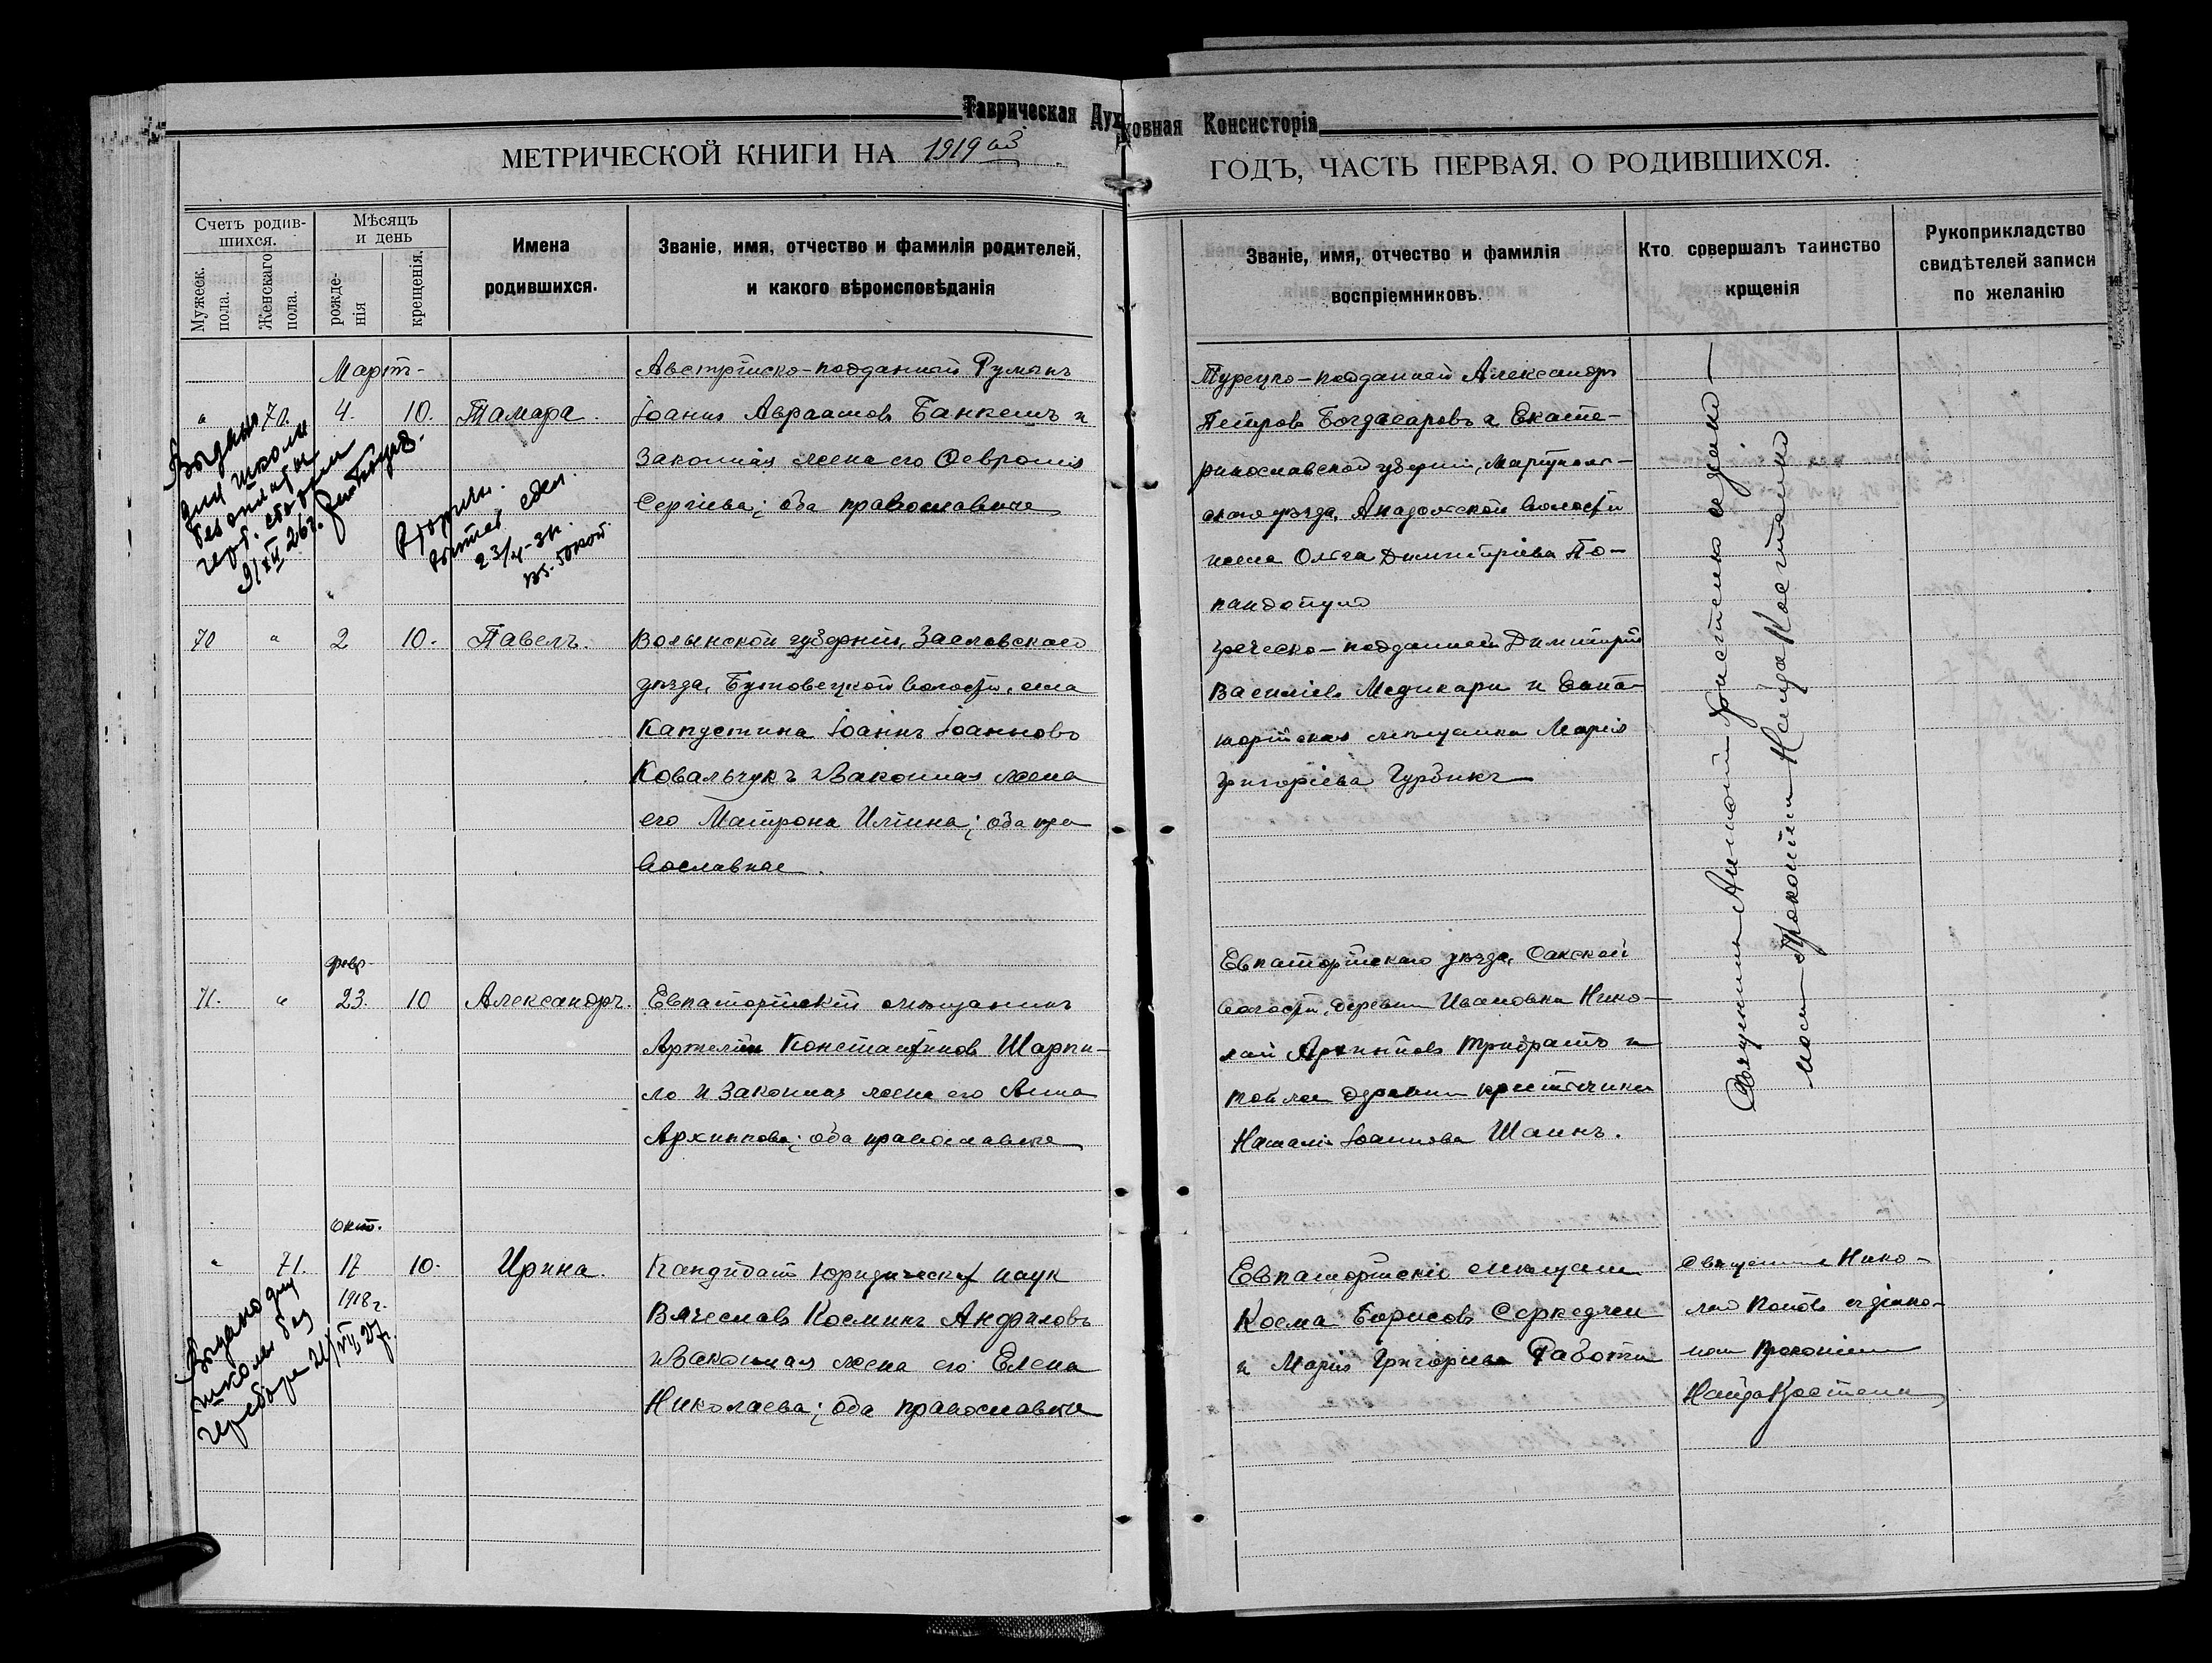 Таврическая Духовная Консисторія
МЕТРИЧЕСКОЙ КНИГИ НА 1919 ый
ГОДЪ, ЧАСТЬ ПЕРВАЯ, О РОДИВШИХСЯ.
Счетъ родив-
шихся.
Мужеск.
пола.
Женскаго
пола.
Мѣсяцъ
и день
рожде-
нія
крещенія.
Имена
родившихся.
Званіе, имя, отчество и фамилія родителей,
и какого вѣроисповѣданія
Званіе, имя, отчество и фамилія
воспріемниковъ.
Кто совершалъ таинство
крщенія
Рукоприкладство
свидѣтелей записи
по желанію
Мартъ
" 70. 4. 10. Тамара.
Австрійско-подданный Румынъ
Іоаннъ Авраамовъ Банкешъ и
Законная жена его Февронія
Сергіева; оба православные
Турецко-подданный Александръ
Петровъ Богдасаровъ и Екате-
ринославской губерніи, Маріуполь-
скаго уѣзда, Анадольской волости
Ольга Димитріева По-
пандопуло
Выдано
для школы
без оплаты
герб. сбора
9/XII 26г.
70 " 2 10. Павелъ.
Волынской губерніи, Заславскаго
уѣзда, Бутовецкой волости, села
Капустина Іоаннъ Іоанновъ
Ковальчукъ и Законная жена
его Матрона Иліина; оба пра
вославные.
Греческо-подданный Димитрій
Василіевъ Медикари и Евпа-
торійская мѣщанка Марія
Григоріева Гурбикъ
Священникъ Николай съ діако-
номъ Прокопіемъ Найда Костенко
февр
71. " 23. 10 Александръ.
Евпаторійскій мѣщанинъ
Константиновъ Шарпи-
ло и Законная жена его Анна
Архиппова; оба православные
Евпаторійскаго уѣзда, Сакской
волости, деревни Ивановки Нико-
лай Архиповъ Трибратъ и
той же деревни крестьянка
Наталія Іоаннова Шаинъ.
окт.
" 71. 17 10. Ирина.
1918 г.
Кандидатъ юридическихъ наук
Вячеславъ Косминъ Анфиловъ
и Законная жена его Елена
Николаева; оба православные
Евпаторійскіе мѣщане
Косма Борисовъ Серкеджи
и Марія Григоріева Работи
священникъ Нико-
лай Поповъ съ діако-
номъ Прокопіемъ
Найда Костенко
Выдано для
школы без
гербсбора 21/VII 27г.